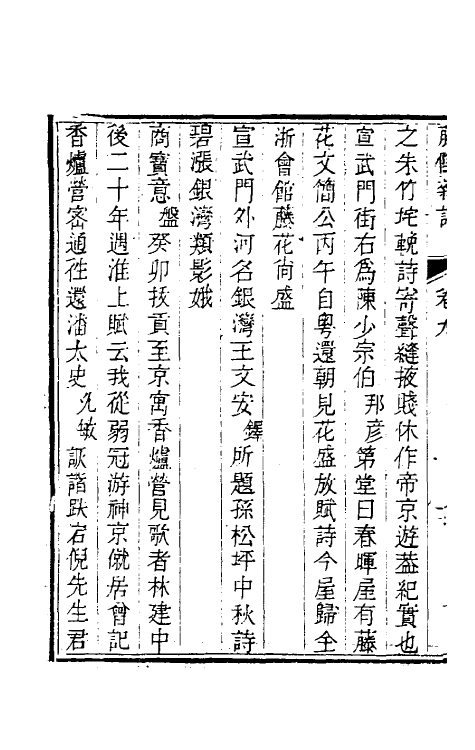 藤陰雜記 卷九
之朱竹垞輓詩寄聲縫掖賤休作帝京遊蓋紀實也
宣武門街右爲陳少宗伯邦彥第堂曰春暉屋有藤
花文簡公丙午自粵還朝見花盛放賦詩今屋歸全
浙會館藤花尙盛
宣武門外河名銀灣王文安鐸所題孫松坪中秋詩
碧漲銀灣類影娥
商寶意盤癸卯拔貢至京寓香爐營見歌者林建中
後二十年遇淮上賦云我從弱冠游神京僦居曾記
香爐營密通往還潘太史允敏詼諧跌宕倪先生君